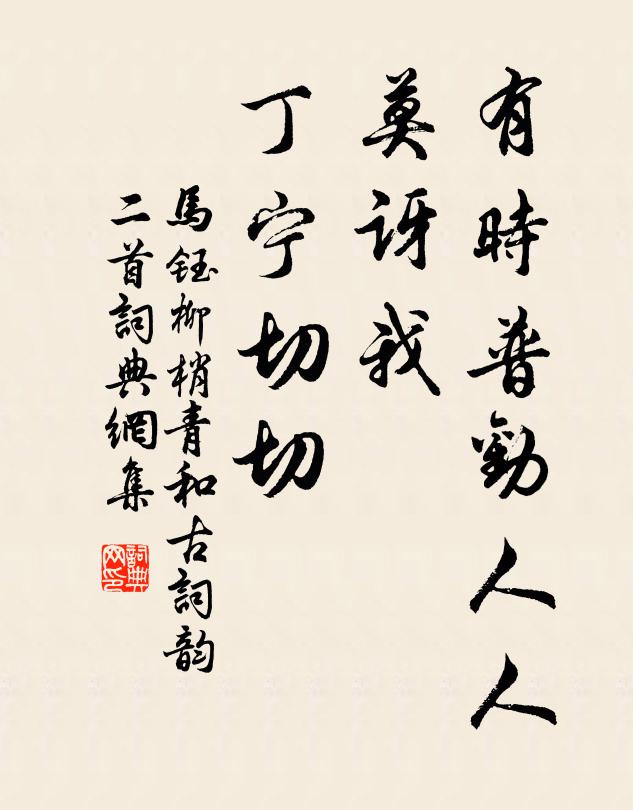 有時普勸人人
莫訝我
丁宁切切
馬鈺柳梢青和古詞韵
二首詞典網集
詞典网印